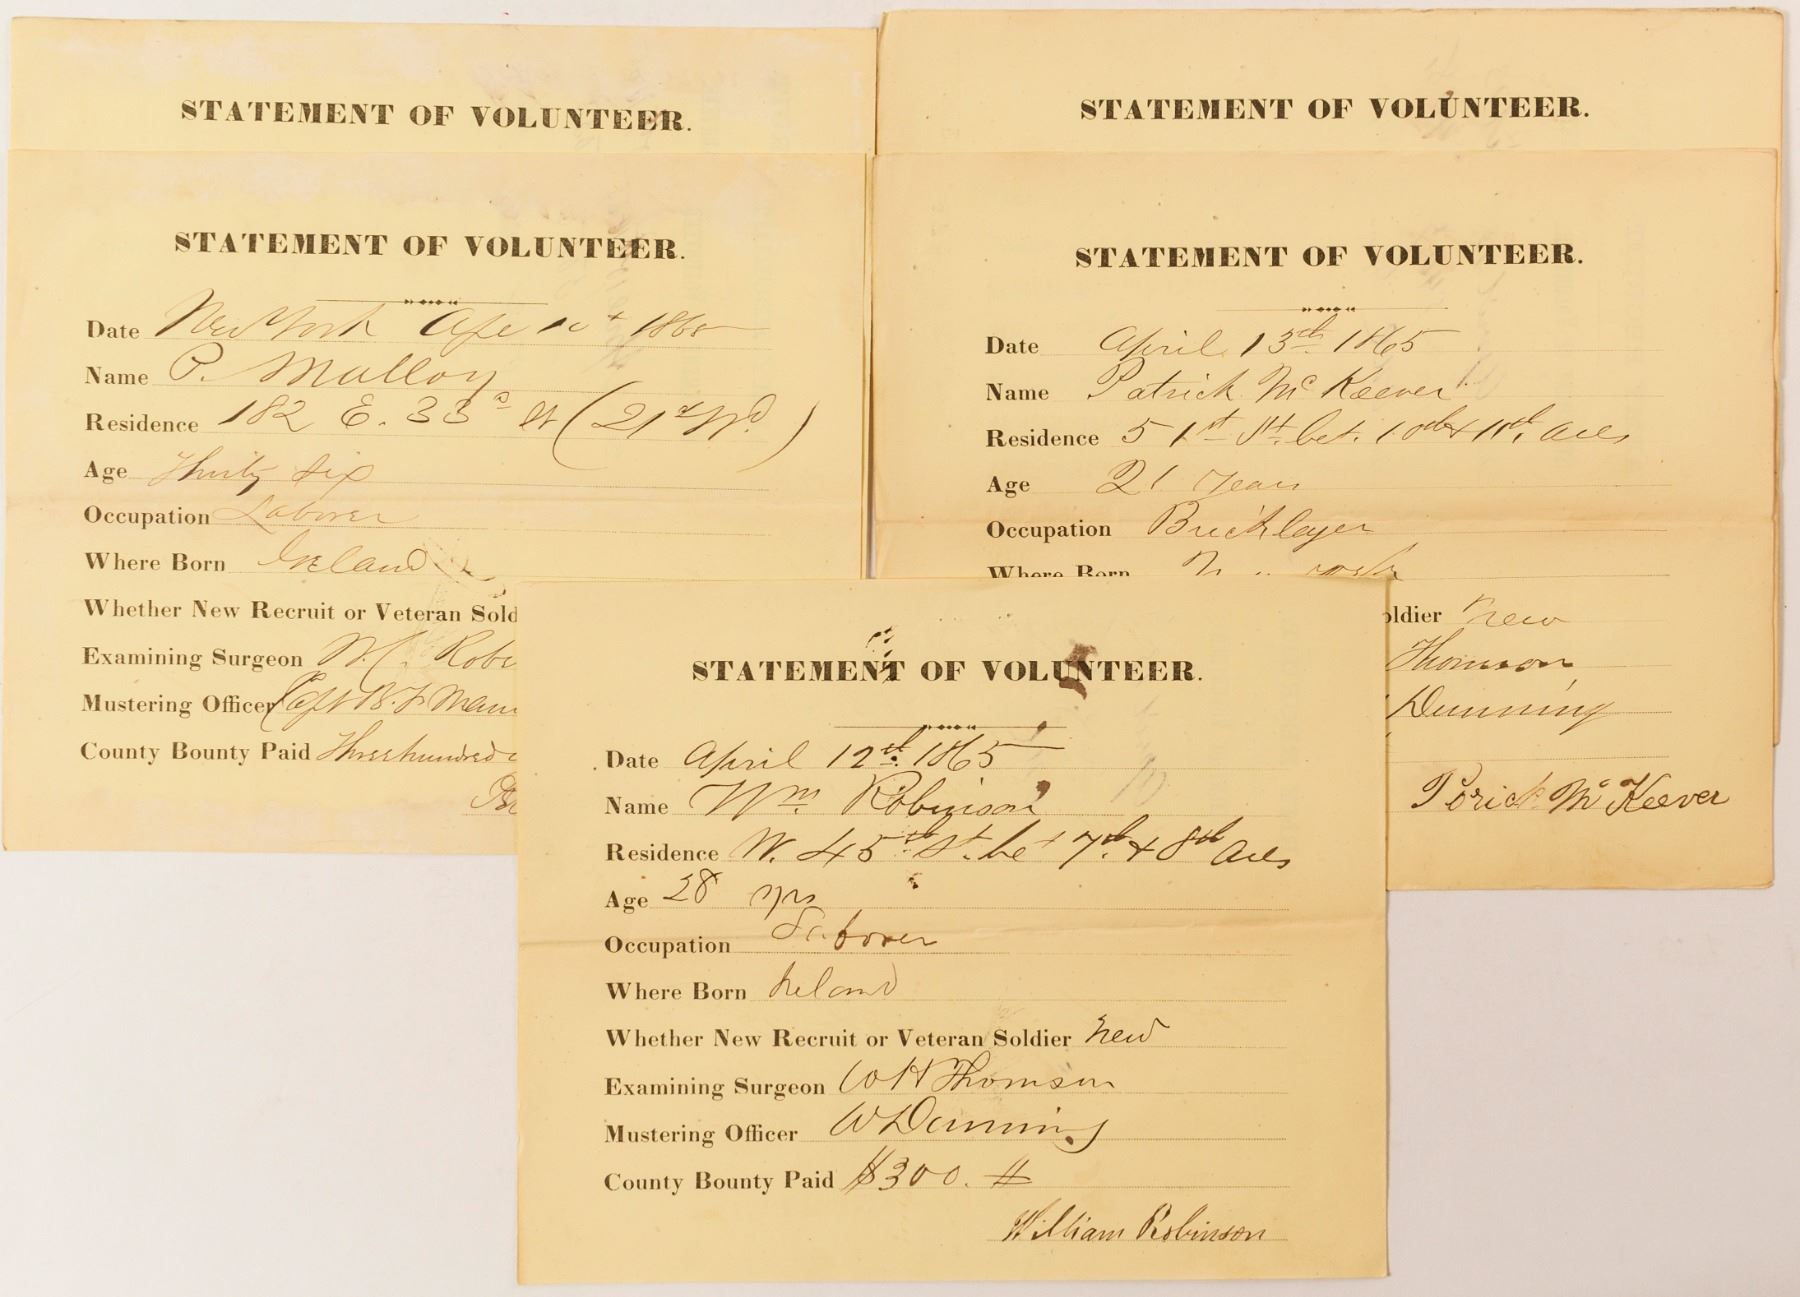 STATEMENT OF VOLUNTEER.
STATEMENT OF VOLUNTEER.
Date New York Ape 10 1865
Name P. Mulloy
Residence 182 E. 33d St (21st Wd)
Age Thirty six
Occupation Laborer
Where Born Ireland
Whether New Recruit or Veteran Sold
Examining Surgeon
Mustering Officer Capt B. F. Mann
County Bounty Paid Three hundred
STATEMENT OF VOLUNTEER.
STATEMENT OF VOLUNTEER.
Date April 13th 1865
Name Patrick McKeever
Residence 51st St. bet. 10th & 11th Aves
Age 21 years
Occupation Bricklayer
Where Born
oldier New
Thomson
Dunning
Patrick McKeever
STATEMENT OF VOLUNTEER.
Date April 12th 1865
Name Wm Robinson
Residence W. 45th St. bet 7th & 8th Aves
Age 28 yrs
Occupation Laborer
Where Born Ireland
Whether New Recruit or Veteran Soldier New
Examining Surgeon W H Thomson
Mustering Officer W Dunning
County Bounty Paid $300.
William Robinson